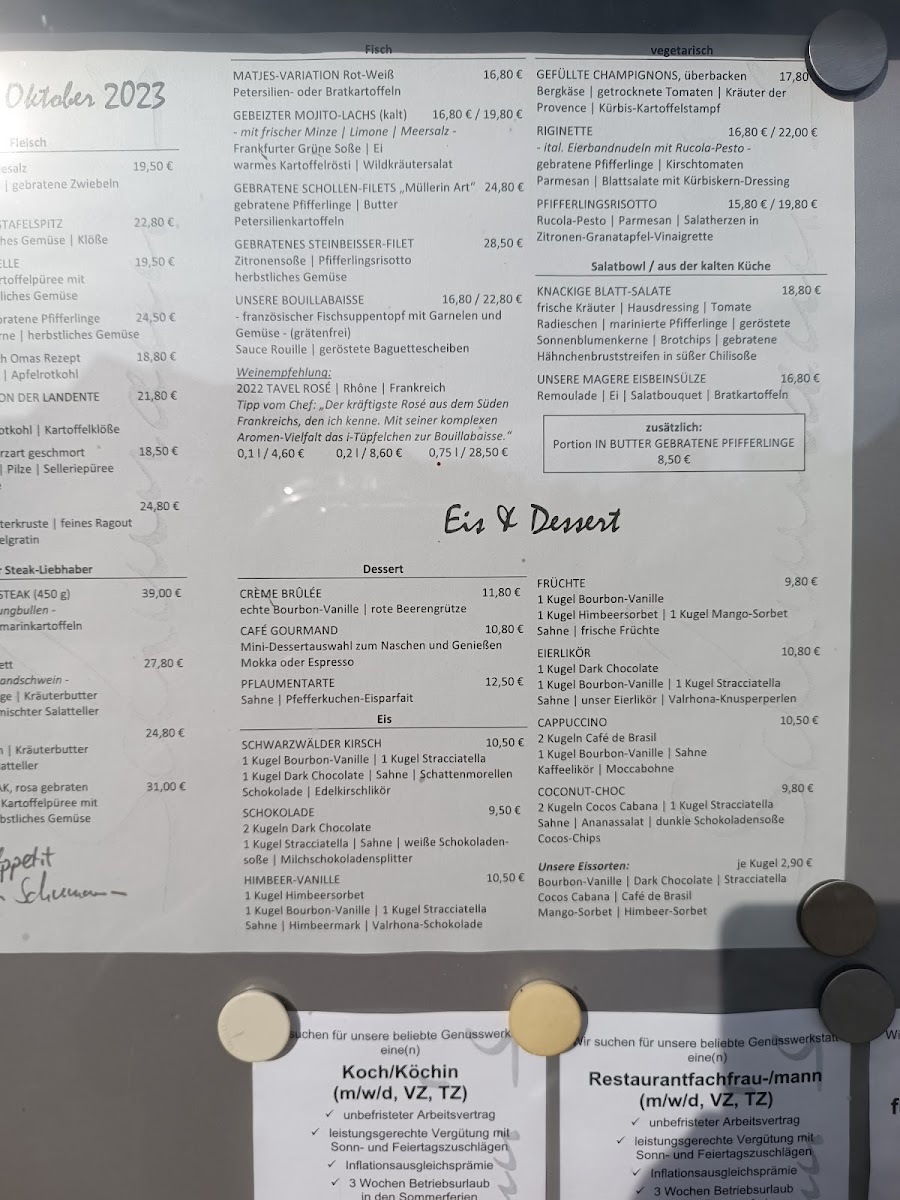 Oktober 2023
Fleisch
esalz 19,50 €
| gebratene Zwiebeln
TAFELSPITZ 22,80 €
hes Gemüse | Klöße
ELLE 19,50 €
rtoffelpüree mit
liches Gemüse
bratene Pfifferlinge 24,50 €
rne | herbstliches Gemüse
h Omas Rezept 18,80 €
| Apfelrotkohl
ON DER LANDENTE 21,80 €
otkohl | Kartoffelklöße
rzart geschmort 18,50 €
| Pilze | Selleriepüree
24,80 €
terkruste | feines Ragout
elgratin
r Steak-Liebhaber
STEAK (450 g) 39,00 €
ungbullen -
marinkartoffeln
ett 27,80 €
andschwein -
ge | Kräuterbutter
mischter Salatteller
24,80 €
n | Kräuterbutter
atteller
AK, rosa gebraten 31,00 €
Kartoffelpüree mit
bstliches Gemüse
Appetit
Schumann
Fisch
MATJES-VARIATION Rot-Weiß 16,80 €
Petersilien- oder Bratkartoffeln
GEBEIZTER MOJITO-LACHS (kalt) 16,80 € / 19,80 €
- mit frischer Minze | Limone | Meersalz -
Frankfurter Grüne Soße | Ei
warmes Kartoffelrösti | Wildkräutersalat
GEBRATENE SCHOLLEN-FILETS „Müllerin Art“ 24,80 €
gebratene Pfifferlinge | Butter
Petersilienkartoffeln
GEBRATENES STEINBEISSER-FILET 28,50 €
Zitronensoße | Pfifferlingsrisotto
herbstliches Gemüse
UNSERE BOUILLABAISSE 16,80 / 22,80 €
- französischer Fischsuppentopf mit Garnelen und
Gemüse - (grätenfrei)
Sauce Rouille | geröstete Baguettescheiben
Weinempfehlung:
2022 TAVEL ROSÉ | Rhône | Frankreich
Tipp vom Chef: „Der kräftigste Rosé aus dem Süden
Frankreichs, den ich kenne. Mit seiner komplexen
Aromen-Vielfalt das i-Tüpfelchen zur Bouillabaisse.“
0,1 l / 4,60 € 0,2 l / 8,60 € 0,75 l / 28,50 €
vegetarisch
GEFÜLLTE CHAMPIGNONS, überbacken 17,80
Bergkäse | getrocknete Tomaten | Kräuter der
Provence | Kürbis-Kartoffelstampf
RIGINETTE 16,80 € / 22,00 €
- ital. Eierbandnudeln mit Rucola-Pesto -
gebratene Pfifferlinge | Kirschtomaten
Parmesan | Blattsalate mit Kürbiskern-Dressing
PFIFFERLINGSRISOTTO 15,80 € / 19,80 €
Rucola-Pesto | Parmesan | Salatherzen in
Zitronen-Granatapfel-Vinaigrette
Salatbowl / aus der kalten Küche
KNACKIGE BLATT-SALATE 18,80 €
frische Kräuter | Hausdressing | Tomate
Radieschen | marinierte Pfifferlinge | geröstete
Sonnenblumenkerne | Brotchips | gebratene
Hähnchenbruststreifen in süßer Chilisoße
UNSERE MAGERE EISBEINSÜLZE 16,80 €
Remoulade | Ei | Salatbouquet | Bratkartoffeln
zusätzlich:
Portion IN BUTTER GEBRATENE PFIFFERLINGE
8,50 €
Eis & Dessert
Dessert
CRÈME BRÛLÉE 11,80 €
echte Bourbon-Vanille | rote Beerengrütze
CAFÉ GOURMAND 10,80 €
Mini-Dessertauswahl zum Naschen und Genießen
Mokka oder Espresso
PFLAUMENTARTE 12,50 €
Sahne | Pfefferkuchen-Eisparfait
Eis
SCHWARZWÄLDER KIRSCH 10,50 €
1 Kugel Bourbon-Vanille | 1 Kugel Stracciatella
1 Kugel Dark Chocolate | Sahne | Schattenmorellen
Schokolade | Edelkirschlikör
SCHOKOLADE 9,50 €
2 Kugeln Dark Chocolate
1 Kugel Stracciatella | Sahne | weiße Schokoladen-
soße | Milchschokoladensplitter
HIMBEER-VANILLE 10,50 €
1 Kugel Himbeersorbet
1 Kugel Bourbon-Vanille | 1 Kugel Stracciatella
Sahne | Himbeermark | Valrhona-Schokolade
FRÜCHTE 9,80 €
1 Kugel Bourbon-Vanille
1 Kugel Himbeersorbet | 1 Kugel Mango-Sorbet
Sahne | frische Früchte
EIERLIKÖR 10,80 €
1 Kugel Dark Chocolate
1 Kugel Bourbon-Vanille | 1 Kugel Stracciatella
Sahne | unser Eierlikör | Valrhona-Knusperperlen
CAPPUCCINO 10,50 €
2 Kugeln Café de Brasil
1 Kugel Bourbon-Vanille | Sahne
Kaffeelikör | Moccabohne
COCONUT-CHOC 9,80 €
2 Kugeln Cocos Cabana | 1 Kugel Stracciatella
Sahne | Ananassalat | dunkle Schokoladensoße
Cocos-Chips
Unsere Eissorten: je Kugel 2,90 €
Bourbon-Vanille | Dark Chocolate | Stracciatella
Cocos Cabana | Café de Brasil
Mango-Sorbet | Himbeer-Sorbet
suchen für unsere beliebte Genusswerk
eine(n)
Koch/Köchin
(m/w/d, VZ, TZ)
✓ unbefristeter Arbeitsvertrag
✓ leistungsgerechte Vergütung mit
Sonn- und Feiertagszuschlägen
✓ Inflationsausgleichsprämie
✓ 3 Wochen Betriebsurlaub
in den Sommerferien
Wir suchen für unsere beliebte Genusswerkstatt
eine(n)
Restaurantfachfrau-/mann
(m/w/d, VZ, TZ)
✓ unbefristeter Arbeitsvertrag
✓ leistungsgerechte Vergütung mit
Sonn- und Feiertagszuschlägen
✓ Inflationsausgleichsprämie
✓ 3 Wochen Betriebsurlaub
Wi
f